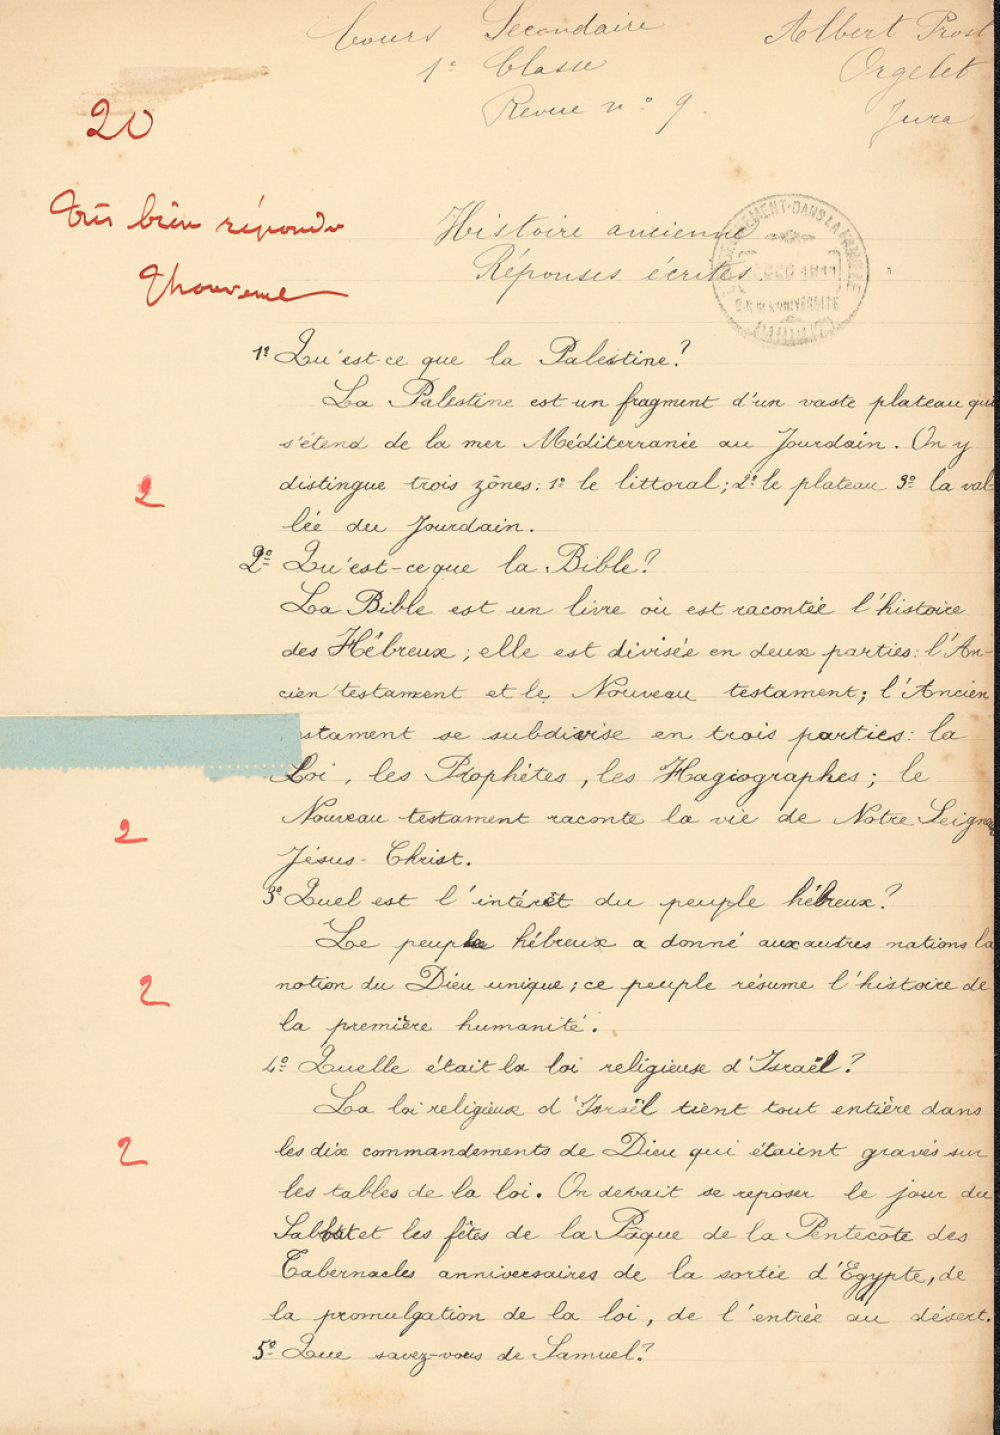 Cours Secondaire
1e Classe
Revue n° 9.
Albert Prost
Orgelet
Jura
20
Très bien répondu
Histoire ancienne
Réponses écrites.
ENSEIGNEMENT·DANS LA FAMILLE
1° Qu'est-ce que la Palestine?
La Palestine est un fragment d'un vaste plateau qui
s'étend de la mer Méditerranée au Jourdain. On y
distingue trois zônes: 1° le littoral; 2° le plateau 3° la val-
2
lée du Jourdain.
2° Qu'est-ce que la Bible?
La Bible est un livre où est racontée l'histoire
des Hébreux; elle est divisée en deux parties: l'An-
cien testament et le Nouveau testament; l'Ancien
stament se subdivise en trois parties: la
Loi, les Prophètes, les Hagiographes; le
Nouveau testament raconte la vie de Notre Seigneu
2
Jésus-Christ.
3° Quel est l'intérêt du peuple hébreux?
Le peuple hébreux a donné aux autres nations la
notion du Dieu unique; ce peuple résume l'histoire de
2
la première humanité.
4° Quelle était la loi religieuse d'Israël?
La loi religieuse d'Israël tient tout entière dans
les dix commandements de Dieu qui étaient gravés sur
2
les tables de la loi. On devait se reposer le jour du
Sabbat et les fêtes de la Pâque de la Pentecôte des
Tabernacles anniversaires de la sortie d'Egypte, de
la promulgation de la loi, de l'entrée au désert.
5° Que savez-vous de Samuel?